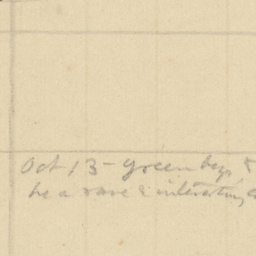 Oct 13 - green bag &
be a rare & interesting